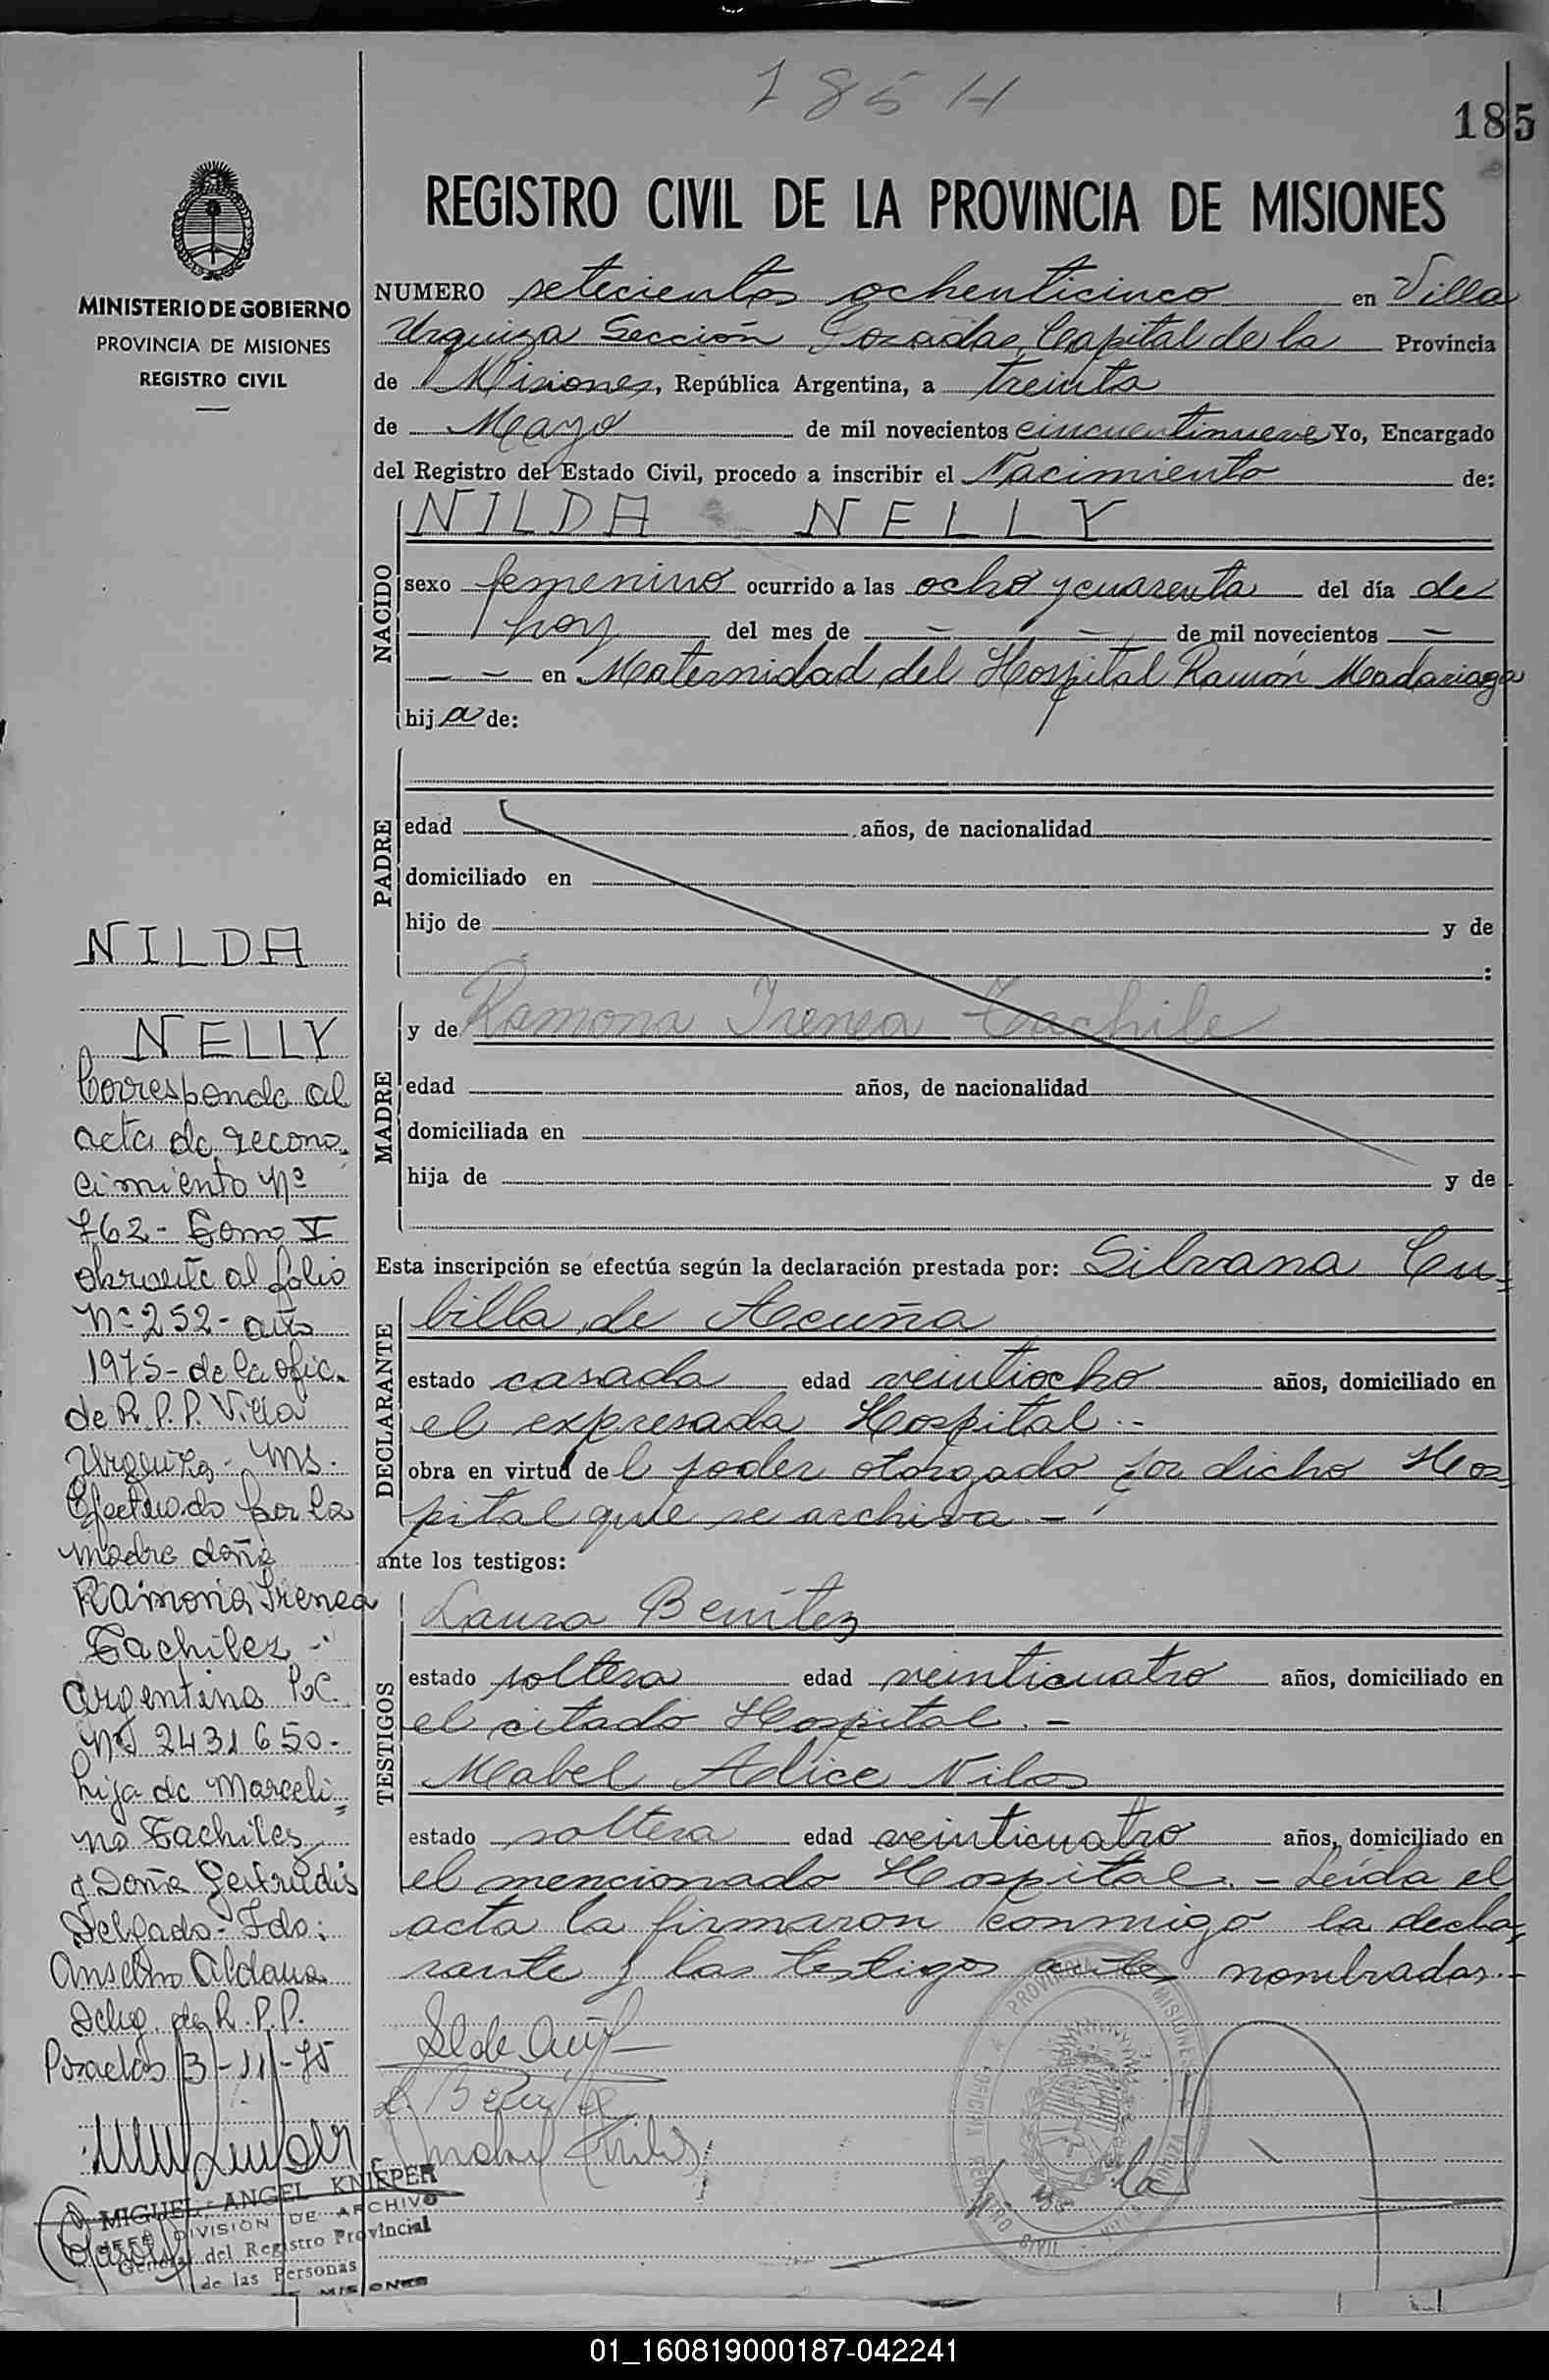 185 H
185
MINISTERIO DE GOBIERNO
PROVINCIA DE MISIONES
REGISTRO CIVIL
REGISTRO CIVIL DE LA PROVINCIA DE MISIONES
NUMERO setecientos ochenticinco en Villa
Urquiza Sección Posadas, Capital de la Provincia
de Misiones, República Argentina, a treinta
de Mayo de mil novecientos cincuentinueve Yo, Encargado
del Registro del Estado Civil, procedo a inscribir el Nacimiento de:
NACIDO
NILDA NELLY
sexo femenino ocurrido a las ocho y cuarenta del día de
hoy del mes de - - de mil novecientos -
- - en Maternidad del Hospital Ramón Madariaga
hija de:
PADRE
edad años, de nacionalidad
domiciliado en
hijo de y de
:
MADRE
y de Ramona Irenea Tachile
edad años, de nacionalidad
domiciliada en
hija de y de
Esta inscripción se efectúa según la declaración prestada por: Silvana Cu-
DECLARANTE
billa de Acuña
estado casada edad veintiocho años, domiciliado en
el expresada Hospital.-
obra en virtud del poder otorgado por dicho Hos-
pital que se archiva.-
ante los testigos:
TESTIGOS
Laura Benítez
estado soltera edad veinticuatro años, domiciliado en
el citado Hospital.-
Mabel Alice Nilos
estado soltera edad veinticuatro años, domiciliado en
el mencionado Hospital.- Leída el
acta la firmaron conmigo la decla-
rante y las testigos antes nombradas.-
NILDA
NELLY
Corresponde al
acta de recono-
cimiento Nº
762- Tomo V
obrante al folio
Nº 252- año
1975- de la ofic.
de R.P.P. Villa
Urquiza- Ms.
Efectuado por la
madre doña
Ramona Irenea
Tachiles -
argentina
Nº 2431650-
hija de Marceli-
no Tachiles
y Doña Gertrudis
Delgado- Fdo:
Anselmo Aldana
Deleg. de R.P.P.
Posadas 13-11-75
MIGUEL ANGEL KNIEPER
JEFE DIVISION DE ARCHIVO
General del Registro Provincial
de las Personas
MISIONES
01_160819000187-042241